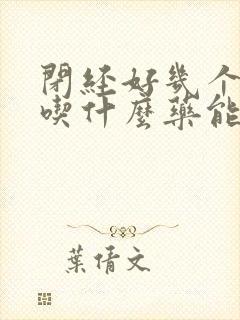 閉経好幾个
喫什麼藥能
葉倩文